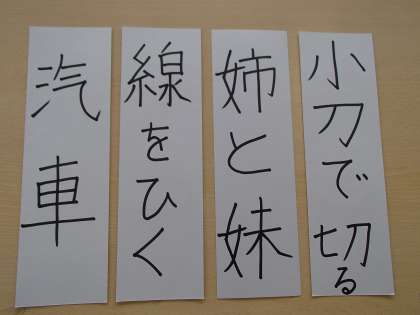 小刀で切る
姉と妹
線をひく
汽車